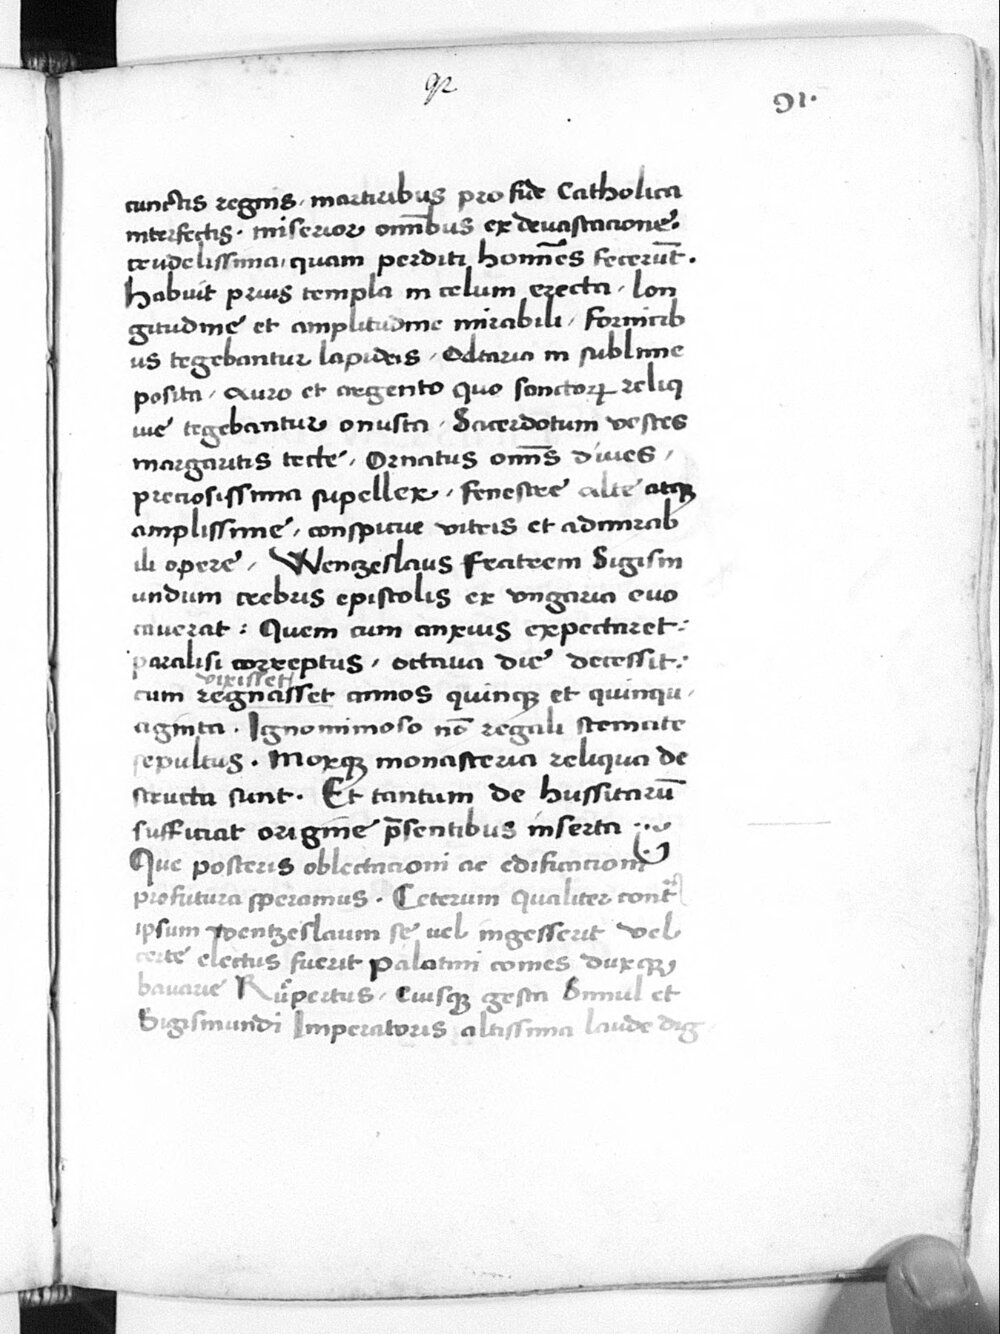 92
91.
cunctis regnis, martiribus pro fide Catholica
interfectis. miserior om̅ibus ex deuastacione.
crudelissima, quam perditi homi̅es feceru̅t.
Habuit prius templa in celum erecta, lon
gitudine et amplitudine mirabili, fornicib
us tegebantur lapideis, Altaria in sublime
posita, Auro et argento quo sanctoꝝ reliq
uie tegebantur onusta. Sacerdotum vestes
margaritis tecte, Ornatus om̅is diues,
preciosissima supellex, fenestre alte atqꝫ
amplissime, conspicue vitris et admirab
ili opere, Wenczeslaus fratrem Sigism
undum crebris epistolis ex vngaria euo
cauerat: Quem cum anxius expectaret:
paralisi correptus, octaua die decessit:
vixisset
cum regnasset annos quinqꝫ et quinqu
aginta. Ignominioso no̅ regali stemate
sepultus. Moxqꝫ monasteria reliqua de
structa sunt. Et tantum de hussitaru̅
sufficiat origine p̅sentibus inserta
Que posteris oblectacioni ac edificacioni
profutura speramus. Ceterum qualiter cont͛
ipsum wentzeslaum se uel ingesserit vel
certe electus fuerit palatini comes duxqꝫ
bauarie Rupertus, Cuiusqꝫ gesta Simul et
Sigismundi Imperatoris altissima laude dig